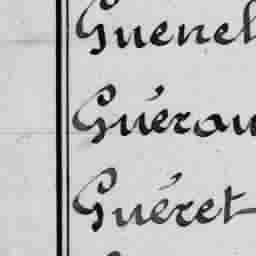 Guenel
Guérau
Guéret